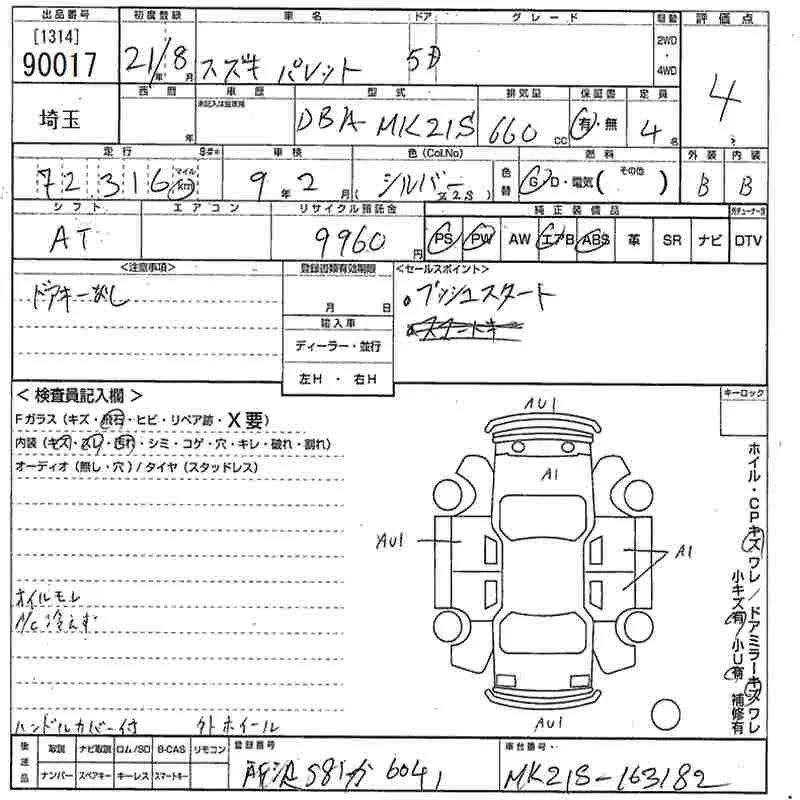 出品番号 初度登録 車名 ドア グレード 駆動 評価点
[1314]
90017 21年/8月 スズキ パレット 5D 2WD・4WD 4
西暦 車歴 型式 排気量 保証書 定員
埼玉 年 未記入は自家用 DBA-MK21S 660cc 有・無 4名
走行 S#* 車検 色(Col.No) 色替 燃料 外装 内装
72316 マイル km 9年2月 (シルバー Z2S) G・D・電気( その他 ) B B
シフト エアコン リサイクル預託金 純正装備品
AT 9960円 PS PW AW エアB ABS 革 SR ナビ DTV
<注意事項> 登録書類有効期限 <セールスポイント>
ドアキーなし 月 日 ・プッシュスタート
輸入車
ディーラー・並行
左H・右H
<検査員記入欄> キーロック
Fガラス(キズ・飛石・ヒビ・リペア跡・X要)
内装(キズ・スレ・汚れ・シミ・コゲ・穴・キレ・破れ・割れ)
オーディオ(無し・穴)/タイヤ(スタッドレス)
AU1
A1
AU1 A1
AU1
ホイル・CPキズワレ/ドアミラーキズワレ
小キズ有/小U有 補修有
オイルモレ
A/C冷えず
ハンドルカバー付 外ホイール
後送品 取説 ナビ取説 ロム/SD B-CAS リモコン 登録番号 車台番号
ナンバー スペアキー キーレス スマートキー 所沢581か6041 MK21S-163182